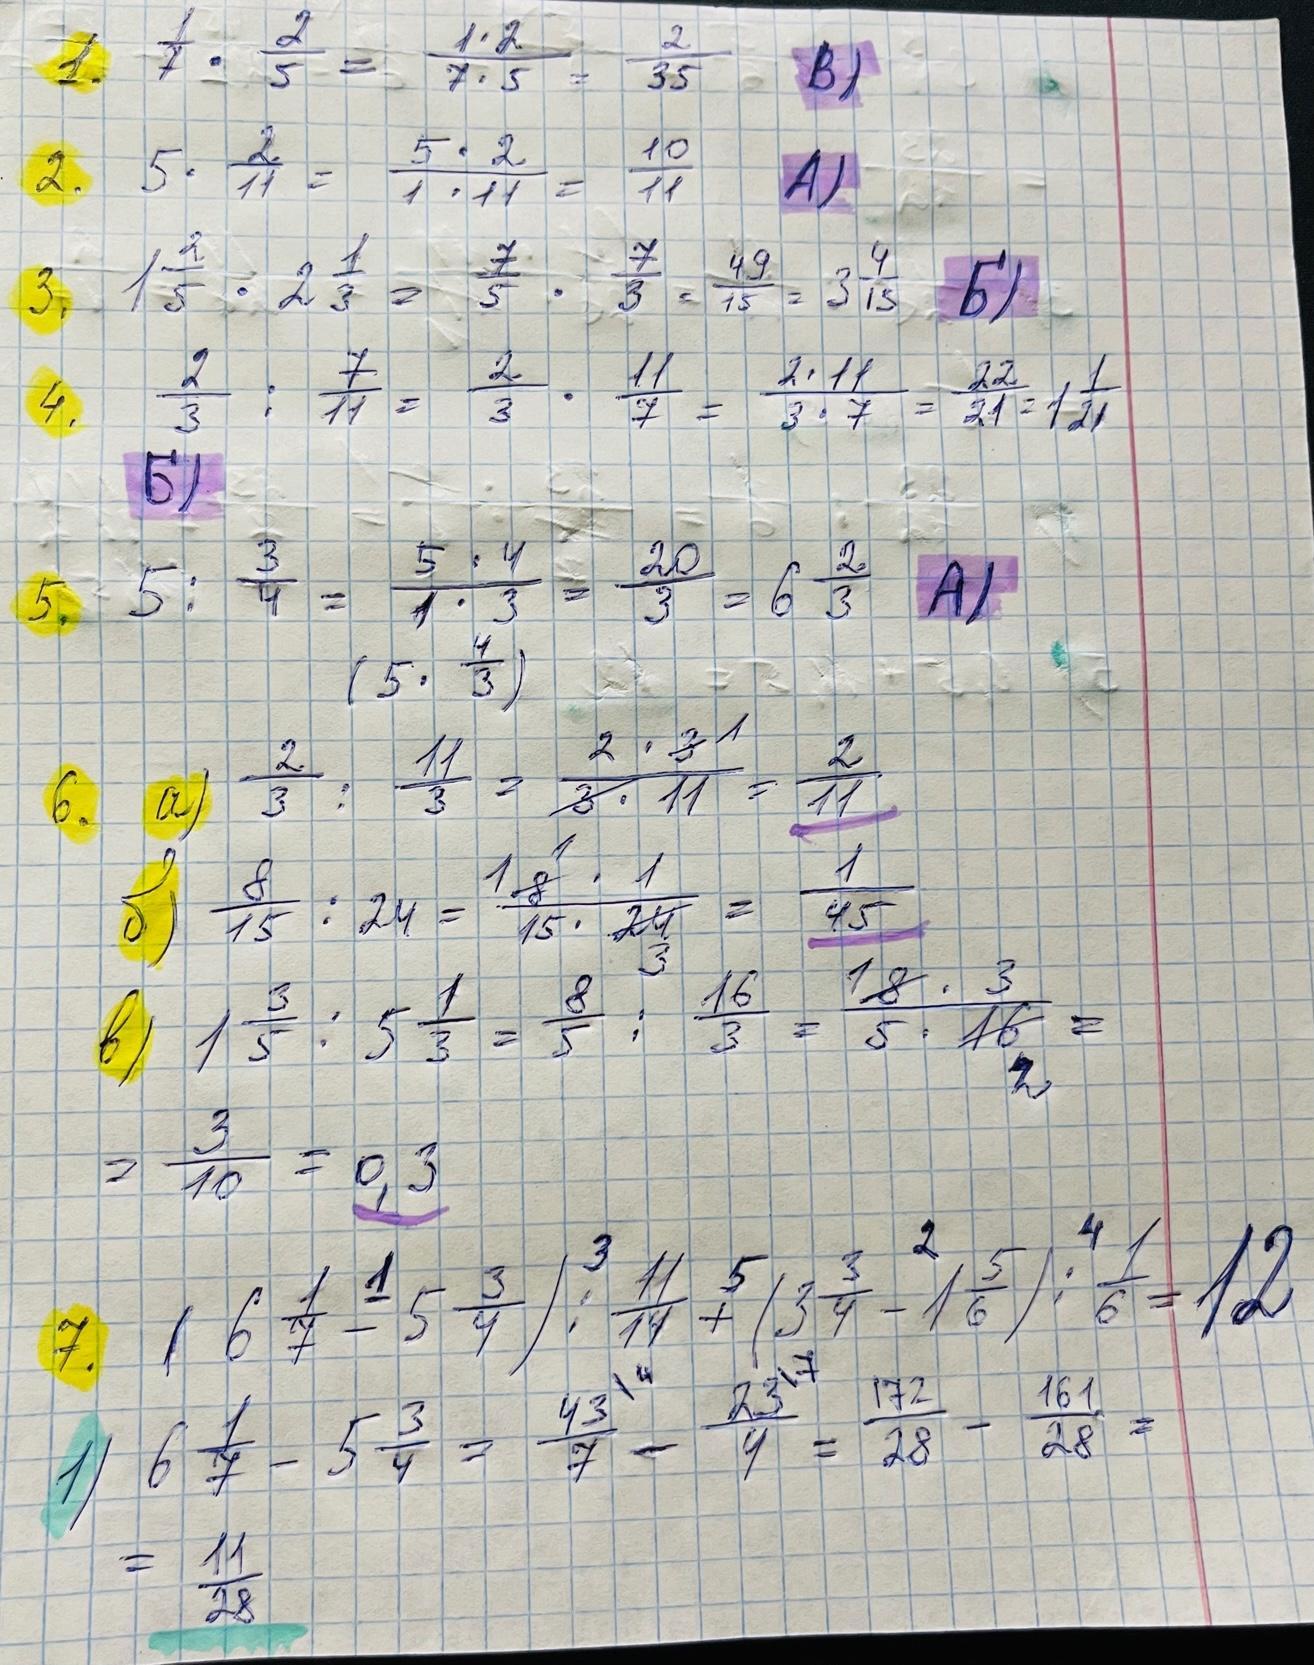 1. 1/7 · 2/5 = 1·2/7·5 = 2/35 В)
2. 5 · 2/11 = 5·2/1·11 = 10/11 А)
3. 1 2/5 · 2 1/3 = 7/5 · 7/3 = 49/15 = 3 4/15 Б)
4. 2/3 : 7/11 = 2/3 · 11/7 = 2·11/3·7 = 22/21 = 1 1/21
Б)
5. 5 : 3/4 = 5·4/1·3 = 20/3 = 6 2/3 А)
(5 · 4/3)
6. а) 2/3 : 11/3 = 2·3 1/3·11 = 2/11
б) 8/15 : 24 = 1 8 1 · 1/15·24 3 = 1/45
в) 1 3/5 : 5 1/3 = 8/5 : 16/3 = 1 8·3/5·16 2 =
= 3/10 = 0,3
7. (6 1/7 -¹ 5 3/4) :³ 11/14 +⁵ (3 3/4 -² 1 5/6) :⁴ 1/6 = 12
1) 6 1/7 - 5 3/4 = 43/7 \4 - 23/4 \7 = 172/28 - 161/28 =
= 11/28